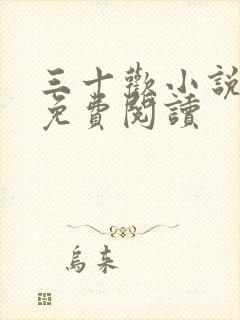 三十歡小說
免費閱讀
烏來